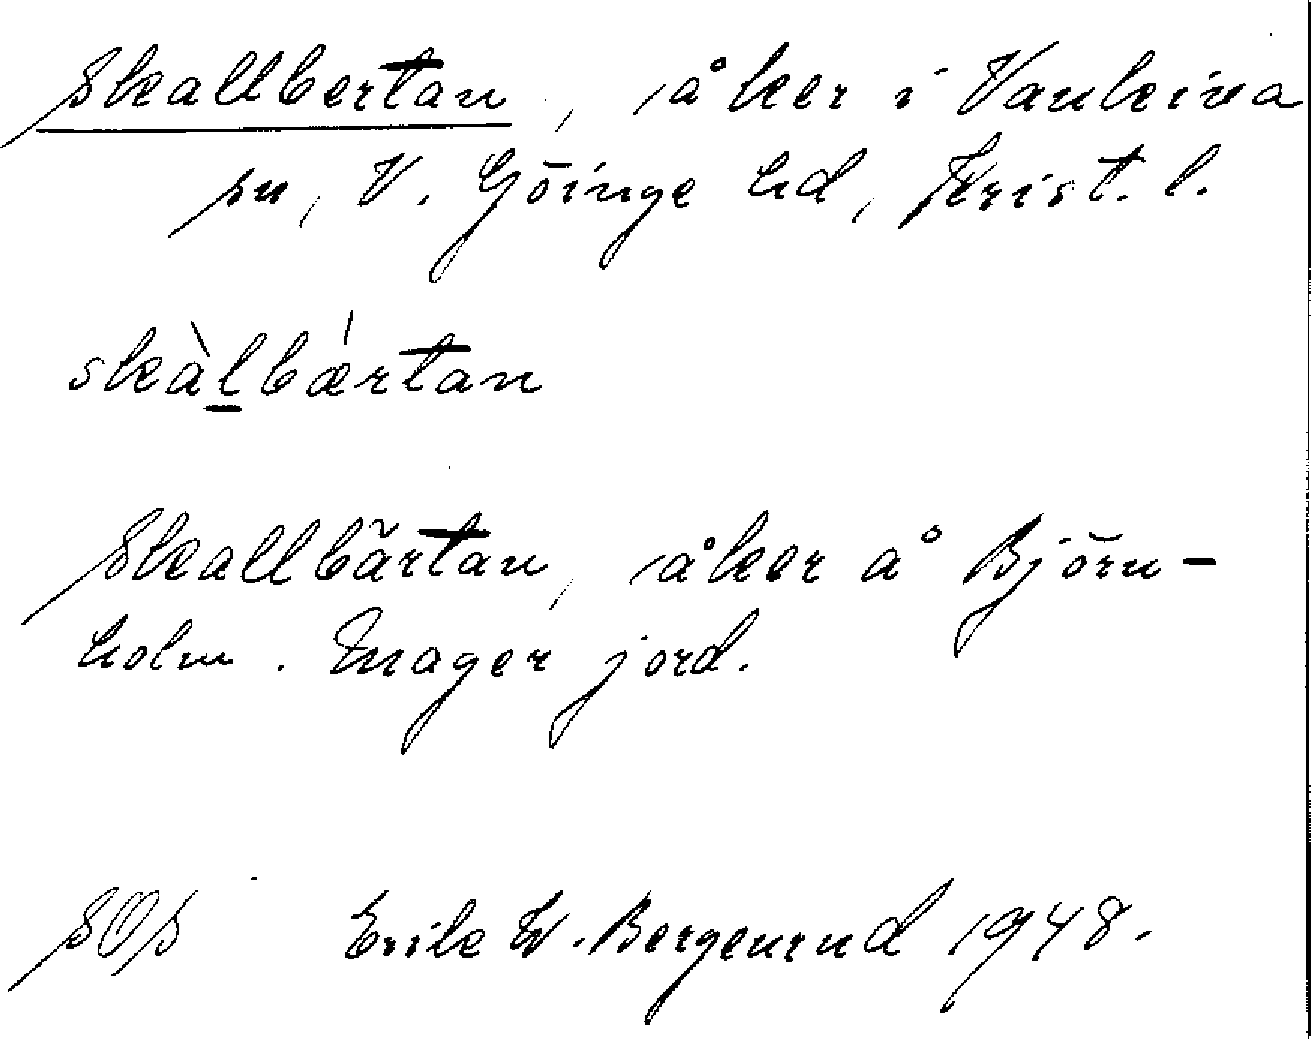 Skallbertan, åker i Vankiva
sn, V. Göinge hd, Krist. l.
skàl̲bǽrtan
Skallbärtan, åker å Björn-
holm. Mager jord.
SOS Erik W. Bergenrud 1948.